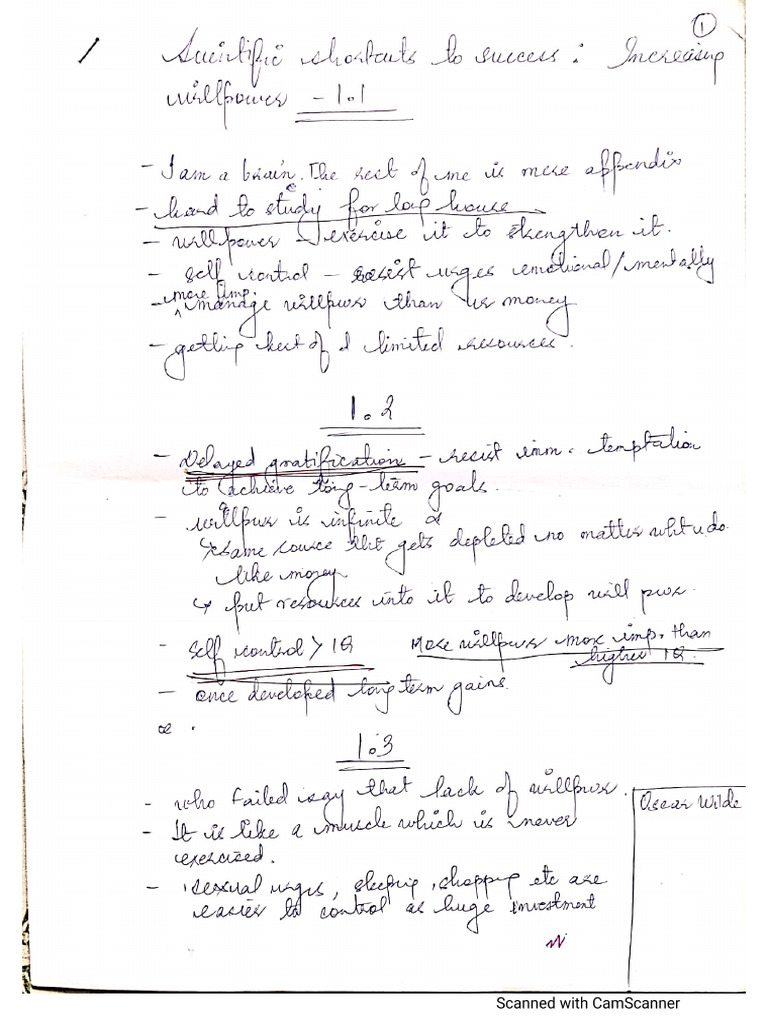 1
/ Scientific shortcuts to success: Increasing
willpower - 1.1
- I am a brain. The rest of me is mere appendix
- hard to study for long hours
- willpower - exercise it to strengthen it.
- self control - resist urges emotional/mentally
more imp.
- manage willpwr than ur money
- getting best of limited resources.
1.2
- Delayed gratification - resist imm. temptation
to achieve long-term goals.
- willpwr is infinite
↳ same source tht gets depleted no matter wht u do
like money
↳ put resources into it to develop will pwr.
- Self control > IQ More willpwr more imp. than
higher IQ.
- once developed long term gains.
1.3
- who failed say that lack of willpwr.
- It is like a muscle which is never
exercized.
- sexual urges, sleeping, shopping etc are
easier to control as huge investment
Oscar Wilde
Scanned with CamScanner